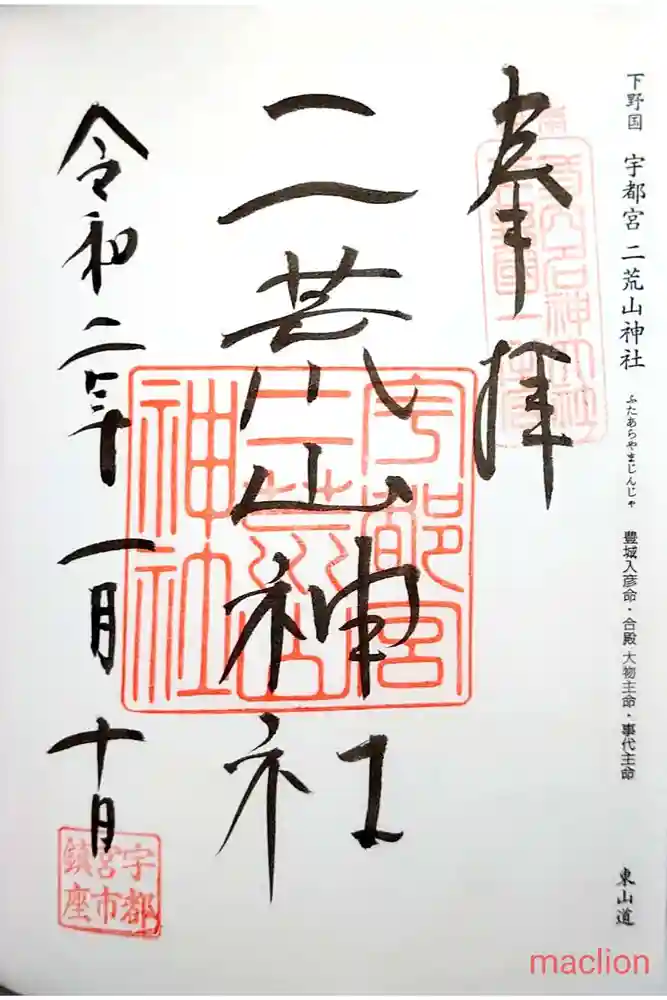 下野国 宇都宮 二荒山神社 ふたあらやまじんじゃ 豊城入彦命・合殿 大物主命・事代主命 東山道
奉拝
式内名神大社
下野国一之宮
二荒山神社
宇都宮
二荒山
神社
令和二年一月十日
宇都
宮市
鎮座
maclion